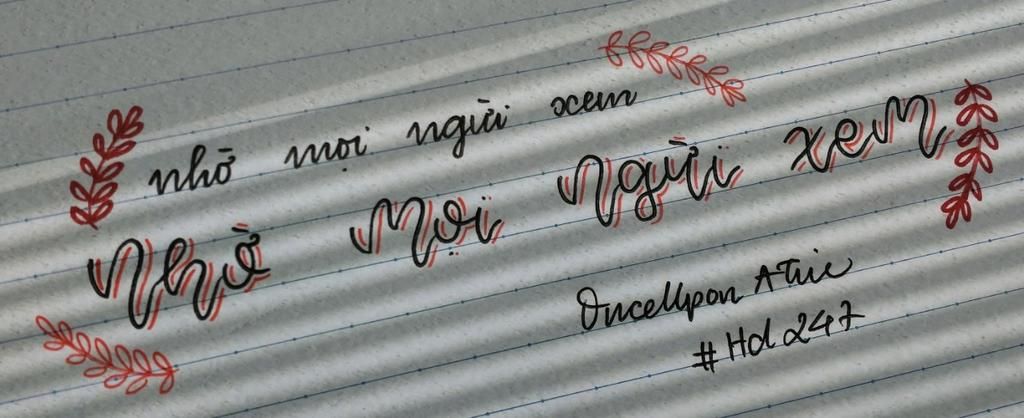 nhờ mọi ngùi xem
Nhờ Mọi Ngùi xem
OnceUpon A Tric
#Hd 247